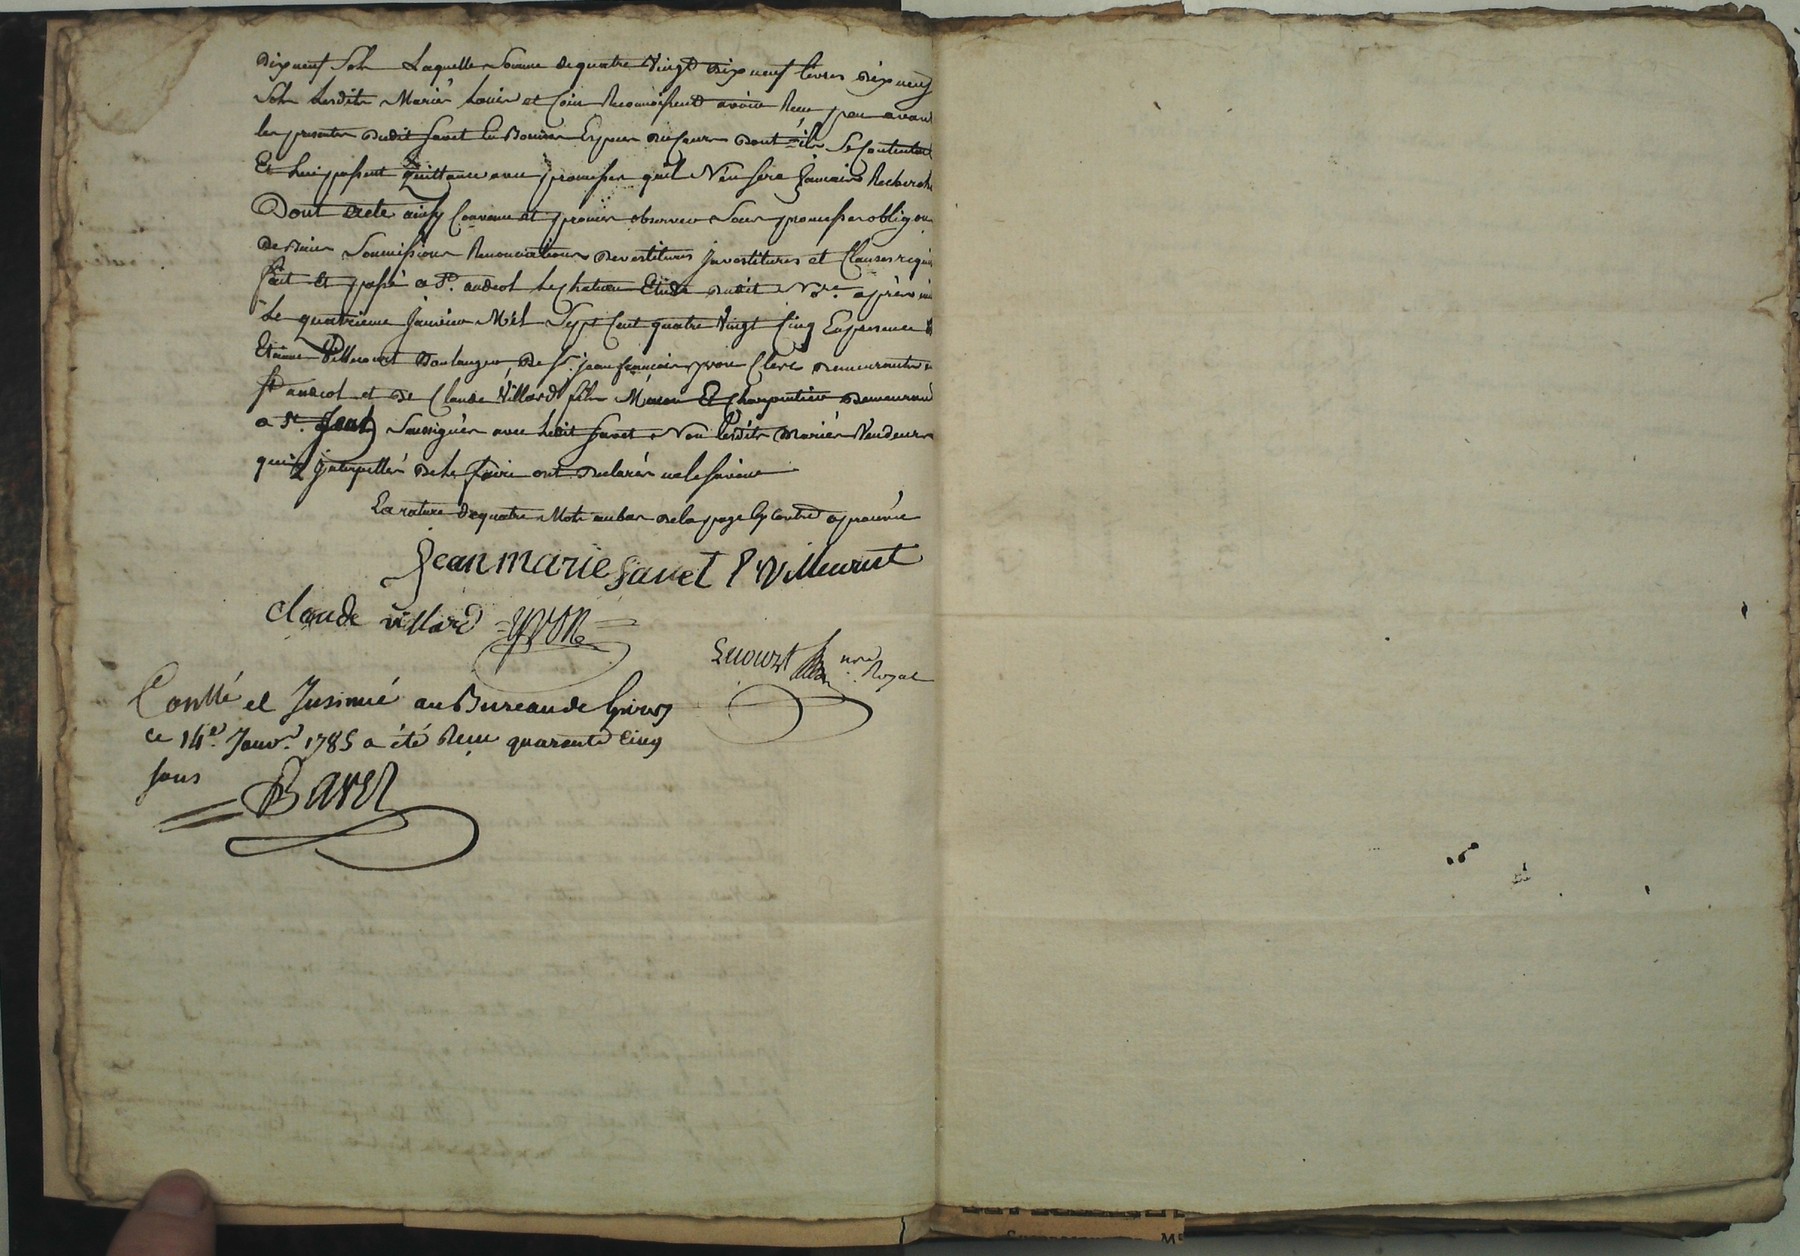 Dixneuf Sols Laquelle Somme de quatre Vingt Dixneuf livres Dixneuf
Sols Lesdits Mariés Louis et Coin Reconnoissent avoir Reçu peu avant
les presentes dudit Favet En Bonnes Especes du Cours dont ils Se Contentent
Et Lui passent quittance avec promesse qu'il N'en Sera Jamais Recherché
Dont acte ainsy Convenu et promis observer Sous promesses oblig on
de Biens Soumissions Renonciations Devestitures Investitures et Clauses requi
fait et passé a St. andeol Le chateau Etude dudit No.re après mi
Le quatrieme Janvier Mil Sept Cent quatre Vingt Cinq En presence
Etienne Villecourt Boulanger, De Sr. jean françois yvon Clerc Demeurants
St andeol et de Claude Villard fils Maçon Et Charpentier Demeurant
a St. Jean Soussignés avec Ledit Favet Non Lesdits Mariés Vendeurs
qui Interpellés de Le faire ont Declarés ne le Savoir
La rature de quatre Mots au bas de la page cy contre approuvée
Jean marie Favet E Villecourt
claude villard yvon
nre Royal
Conllé et Insinué au Bureau de Givors
ce 14e. Janvr. 1785 a été Reçu quarante Cinq
sous